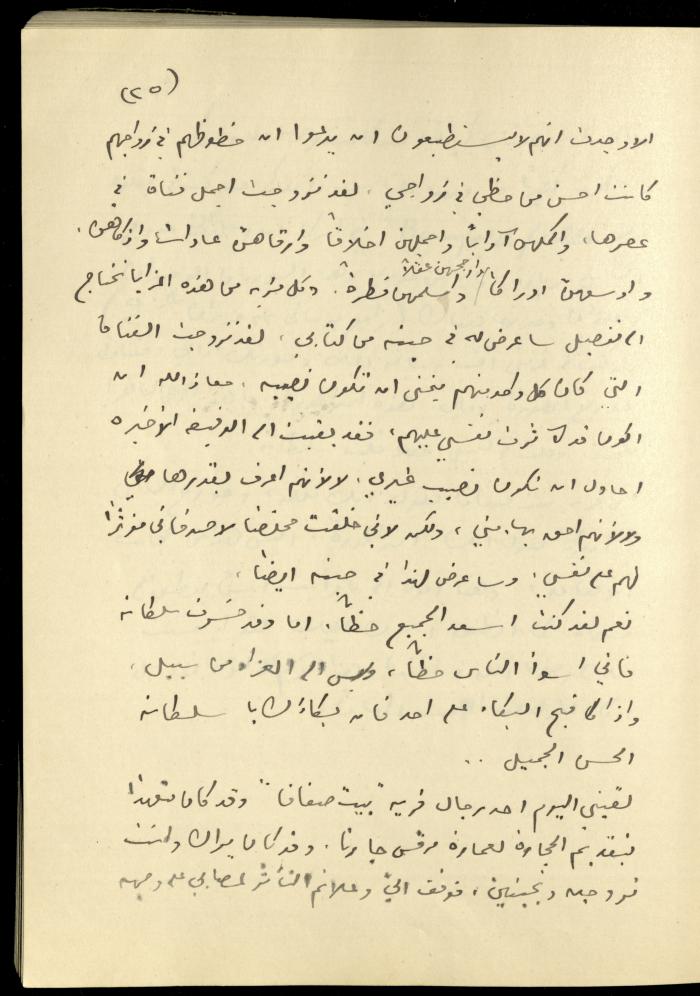 (٢٥)
الا وجدت انهم لا يستطيعون ان يدعوا ان حظوظهم في زواجهم
كانت احسن من حظي في زواجي . لقد تزوجت اجمل فتاة في
عصرها، واكملهن آداباً واجملهن اخلاقاً وارقاهن عادات واذكاهن .
واوسعهن ادراكاً وارجحهن عقلاً واسلمهن فطرة . وكل مزيه من هذه المزايا تحتاج
الى تفصيل ساعرض له في حينه من كتابي . لقد تزوجت الفتاة
التي كان كل واحد منهم يتمنى ان تكون نصيبه . معاذ الله ان
اكون قد آثرت نفسي عليهم، فقد بقيت الى الدقيقة الاخيره
احاول ان تكون نصيب غيري، لا لانهم اعرف بقدرها مني
ولا لأنهم احق بها مني ، ولكن لاني خلقت مخلصا لاصدقائي مؤثراً
لهم على نفسي . وساعرض لهذا في حينه ايضاً .
نعم لقد كنت اسعد الجميع حظاً . اما وقد خسرت سلطانه
فاني اسوأ الناس حظاً، وليس الى العزاء من سبيل .
واذا قبح البكاء على احد فان بكاءك يا سلطانه
الحسن الجميل ..
لقيني اليوم احد رجال قرية "بيت صفافا" وقد كان متعهدا
بتقديم الحجارة لعمارة مرقس جارنا . وقد كان يراك وانت
تروحين وتجيئين ، فوقف اليّ وعلائم التأثر لمصابي على وجهه